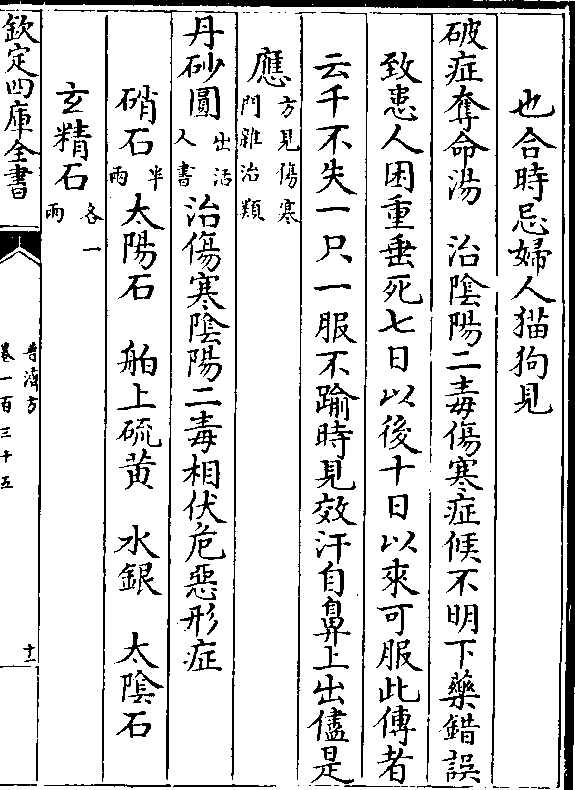 也合時忌婦人猫狗見
破症奪命湯　治陰陽二毒傷寒症候不明下藥錯誤
致患人困重垂死七日以後十日以來可服此傳者
云千不失一只一服不踰時見效汗自鼻上出儘是
應方見傷寒門雜治類
丹砂圓出活人書治傷寒陰陽二毒相伏危惡形症
硝石半兩太陽石　舶上硫黃　水銀　太陰石
玄精石各一兩
欽定四庫全書
普濟方
卷一百三十五
十二